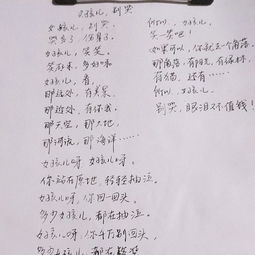 女孩儿，别哭
女孩儿，别哭，
哭多了，伤鼻子。
女孩儿，笑笑，
笑起来，多好味
女孩儿，看，
那远处，有美景
那近处，有你我
那天空，那大地，
那河流，那海洋……
女孩儿呀，女孩儿呀，
你站在原地，轻轻抽泣。
女孩儿呀，你回一回头，
多少女孩儿，都在抽泣。
女孩儿呀，你千万别回头，
多少女孩儿，都在
何必，女孩儿，
笑一笑吧！
如果可以，你就去一个角落，
那角落，有阳光，有绿林，
有方糖，还有……
何必，女孩儿，
别哭，眼泪不值钱！